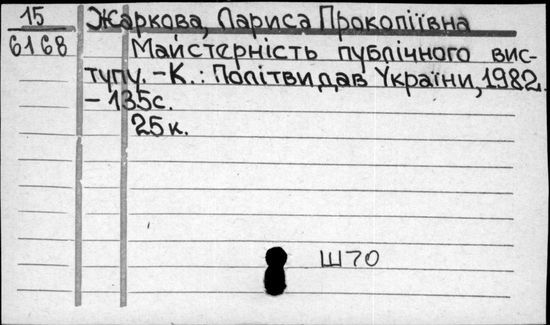 15
6168
Жаркова, Лариса Прокопіївна
Майстерність публічного вис-
тупу. – К.: Політвидав України, 1982.
– 135с.
25к.
Ш70